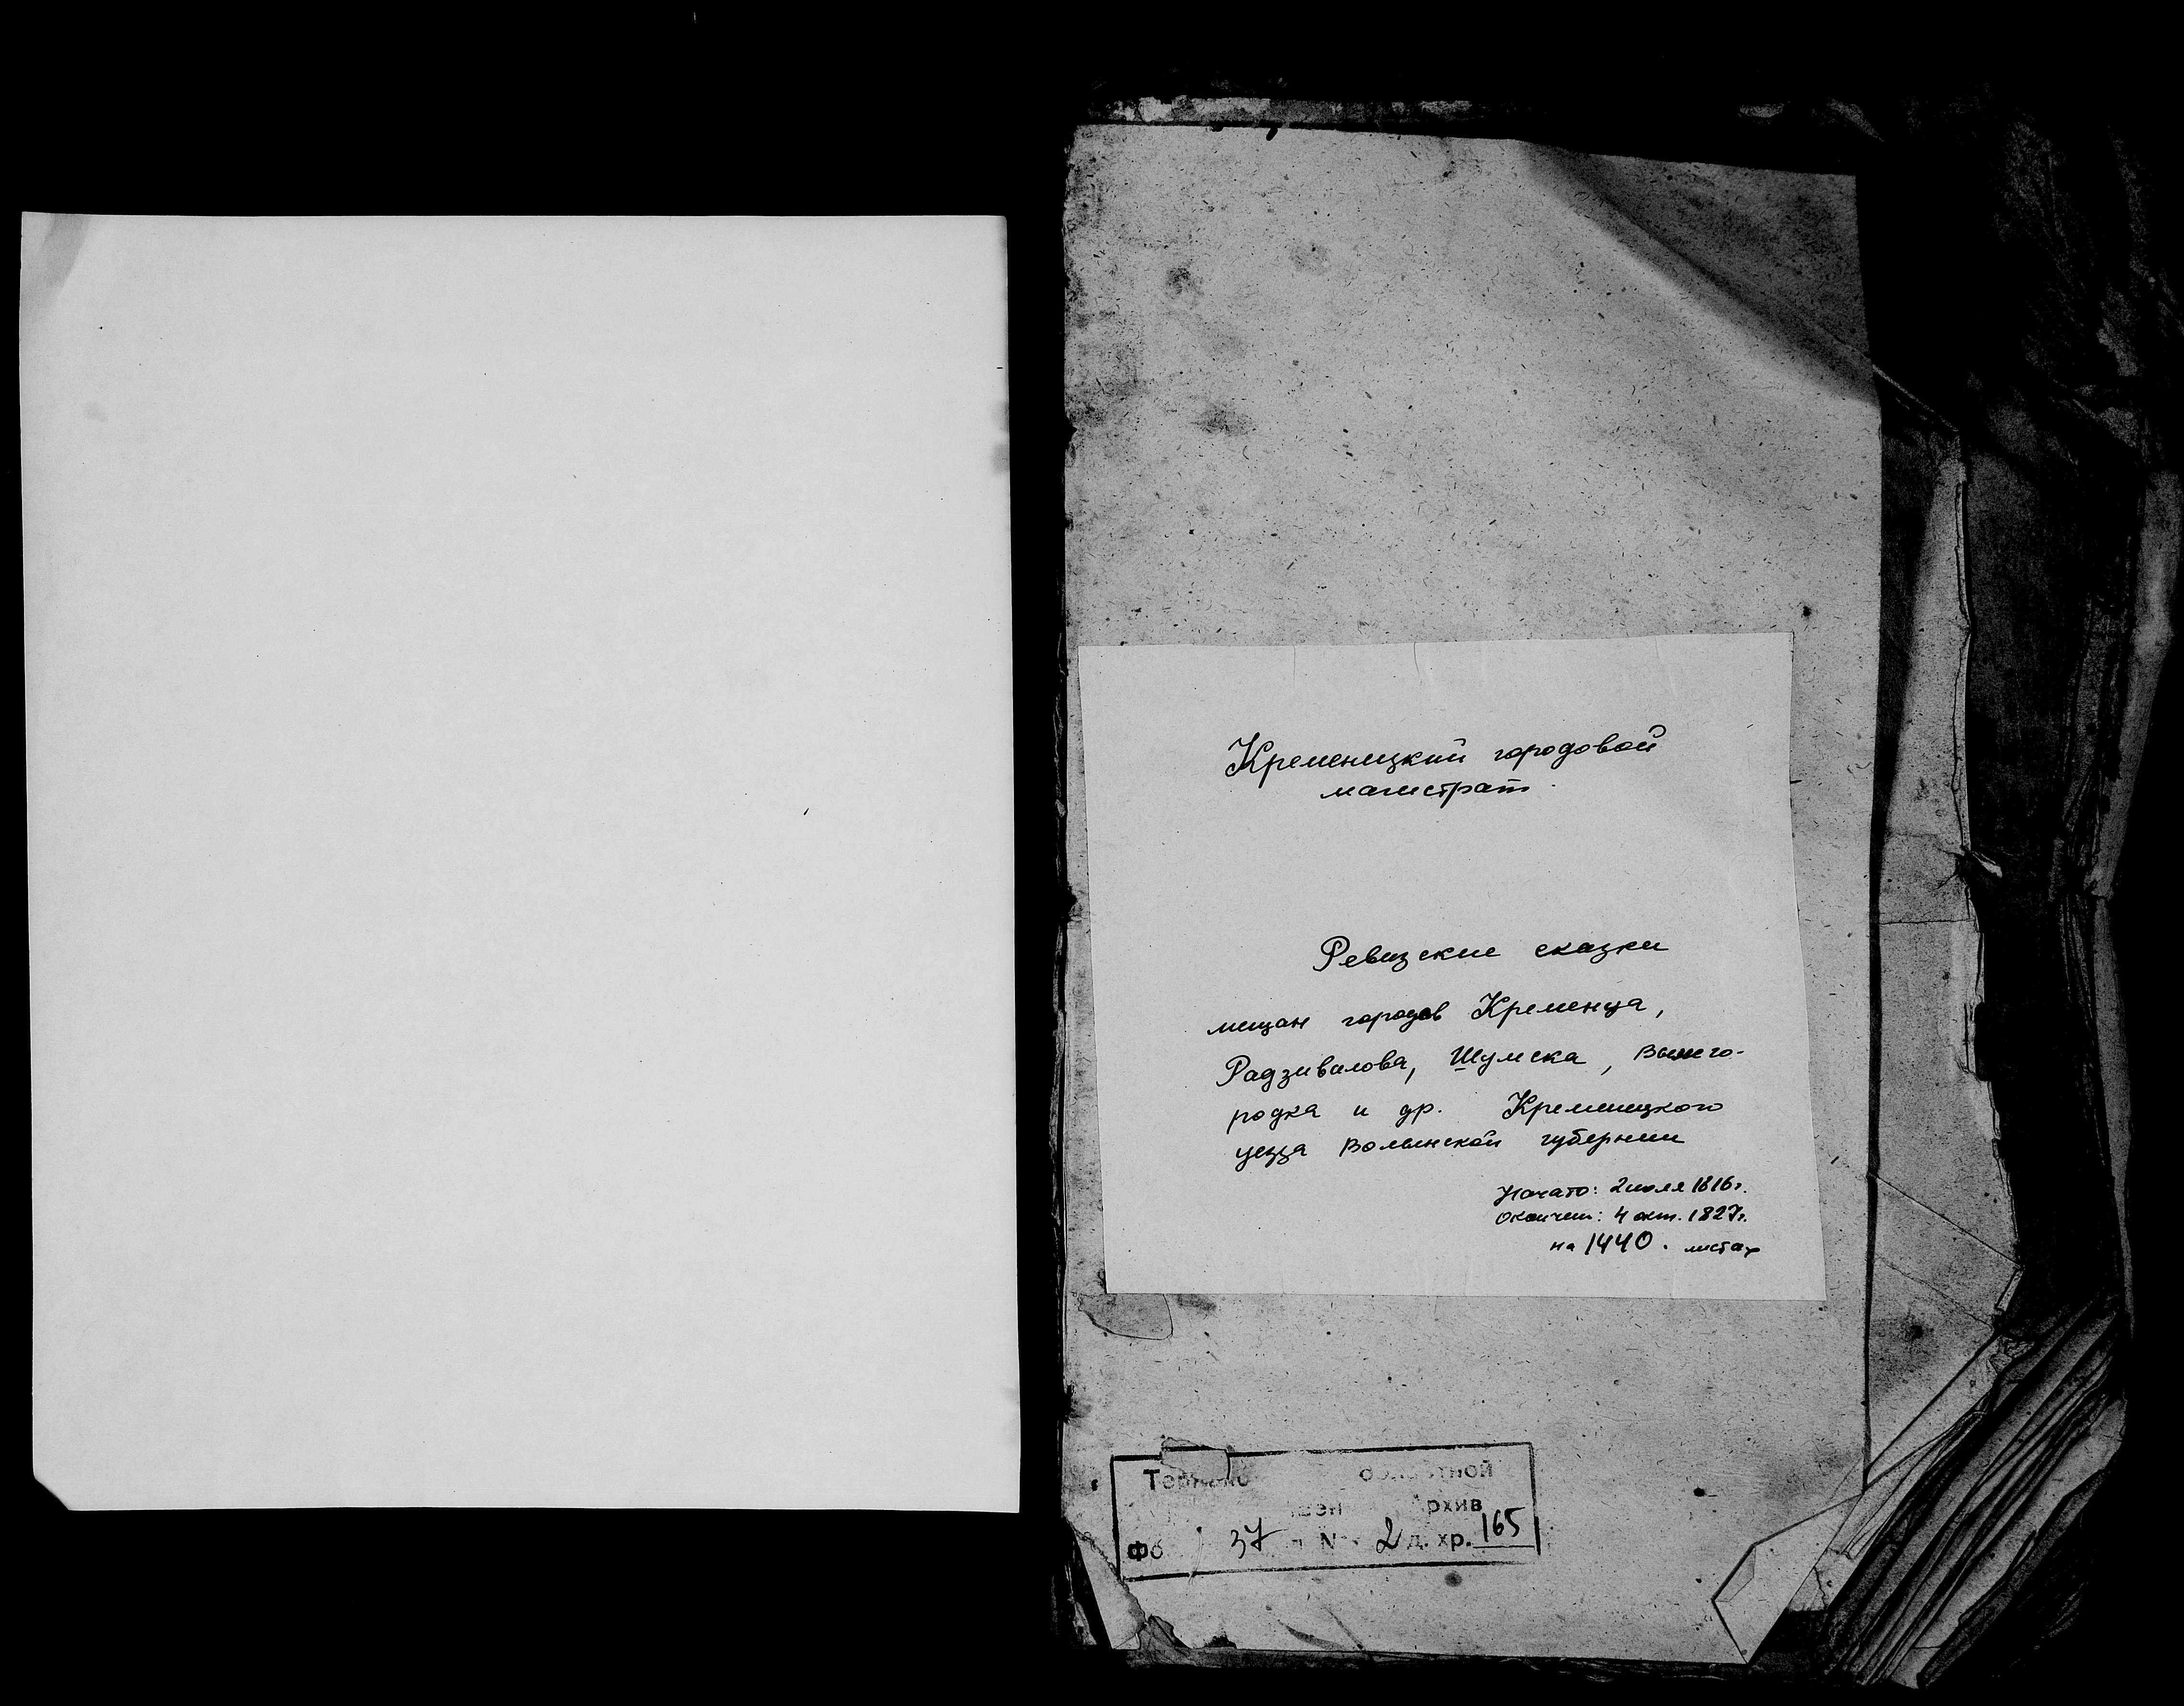 Кременецкий городовой
магистрат.
Ревизские сказки
мещан городов Кременца,
Радзивилова, Шумска, Вышго-
родка и др. Кременецкого
уезда Волынской губернии
Начато: 2 июля 1816 г.
Окончен: 4 окт. 1827 г.
на 1440. листах
областной
архив
37 № 2 д. хр. 165